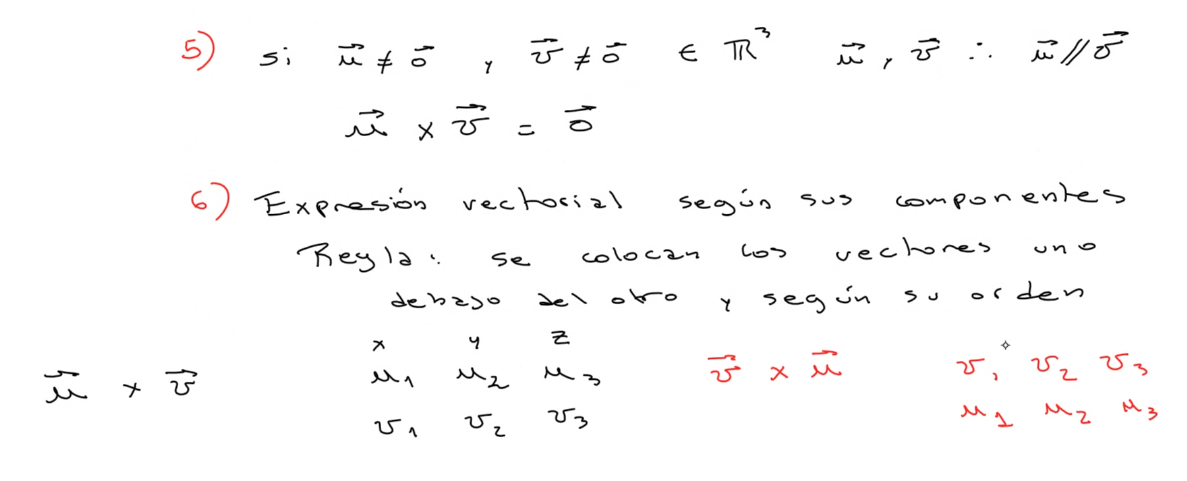 5) si u⃗ ≠ o⃗ , v⃗ ≠ o⃗ ∈ ℝ³ u⃗ , v⃗ ∴ u⃗ // v⃗
u⃗ × v⃗ = o⃗
6) Expresión vectorial según sus componentes
Regla: se colocan los vectores uno
debajo del otro y según su orden
x y z
u⃗ × v⃗ u₁ u₂ u₃ v⃗ × u⃗ v₁ v₂ v₃
v₁ v₂ v₃ u₁ u₂ u₃